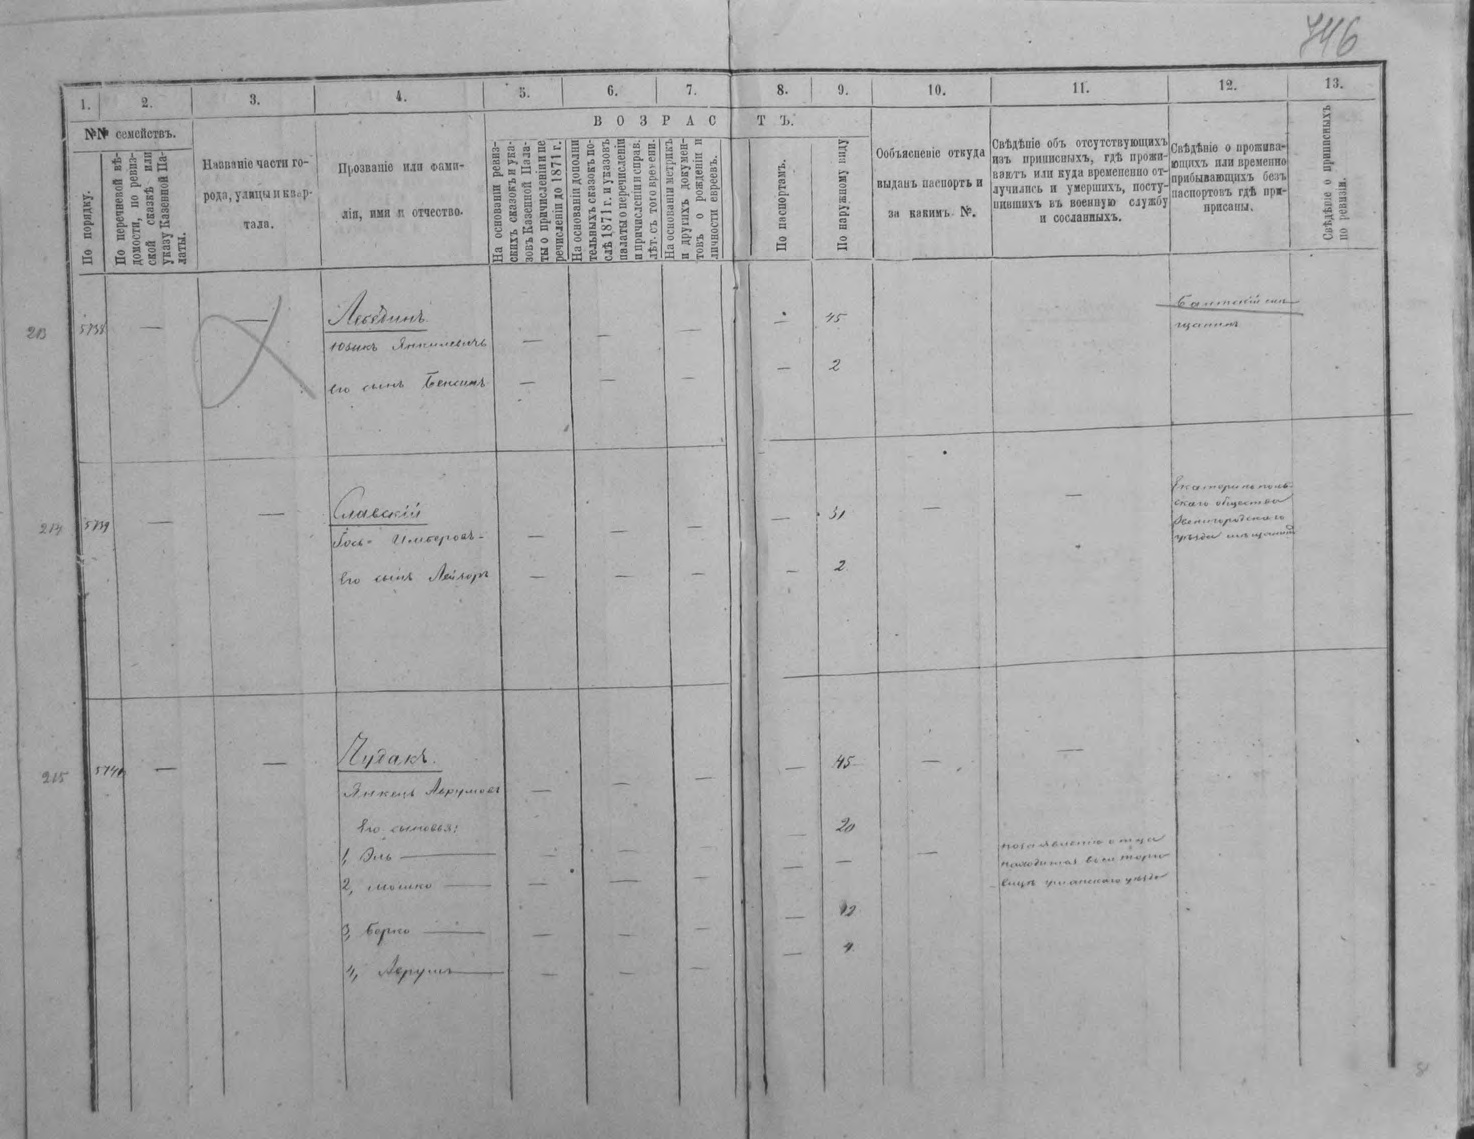 746
1.
2.
3.
4.
5.
6.
7.
8.
9.
10.
11.
12.
13.
№№ семействъ.
По порядку.
По перечневой вѣ-
домости, по ревиз-
ской сказкѣ или
указу Казенной Па-
латы.
Названіе части го-
рода, улицы и квар-
тала.
Прозваніе или фами-
лія, имя и отчество.
ВОЗРАСТЪ.
На основаніи ревиз-
скихъ сказокъ и ука-
зовъ Казенной Пала-
ты о причисленіи и пе
речисленіи до 1871 г.
На основаніи дополни
тельныхъ сказокъ по-
слѣ 1871 г. и указовъ
палаты о перечисленіи
и причисленіи и справ.
лѣт. съ того времени.
На основаніи метрикъ
и другихъ докумен-
товъ о рожденіи и
личности евреевъ.
По паспортамъ.
По наружному виду
Ообъясненіе откуда
выданъ паспортъ и
за какимъ №.
Свѣдѣніе объ отсутствующихъ
изъ приписныхъ, гдѣ прожи-
ваютъ или куда временно от-
лучились и умершихъ, посту-
пившихъ въ военную службу
и сосланныхъ.
Свѣдѣніе о прожива-
ющихъ или временно
прибывающихъ безъ
паспортовъ гдѣ при-
присаны.
Свѣдѣніе о приписныхъ
по ревизіи.
213
5738
—
—
Лебединъ
Юзикъ Янкилевичъ
— — — — 45
Его сынъ Бенсинъ
— — — — 2
щанинъ
214
5739
—
—
Славскій
— — — — 31
— —
Его сынъ Лейзоръ
— — — — 2
Екатеринополь-
скаго общества
Звенигородскаго
уѣзда мѣщанинъ
215
5740
—
—
Чудакъ.
Янкель Аврумовъ
— — — — 45
— —
Его сыновья:
— 20
1, Эль —
— — — — —
2, Мошко —
— — — — 12
3, Берко —
— — — — 4
4, Аврумъ —
— — —
по заявленію отца
находится
уманскаго уѣзда